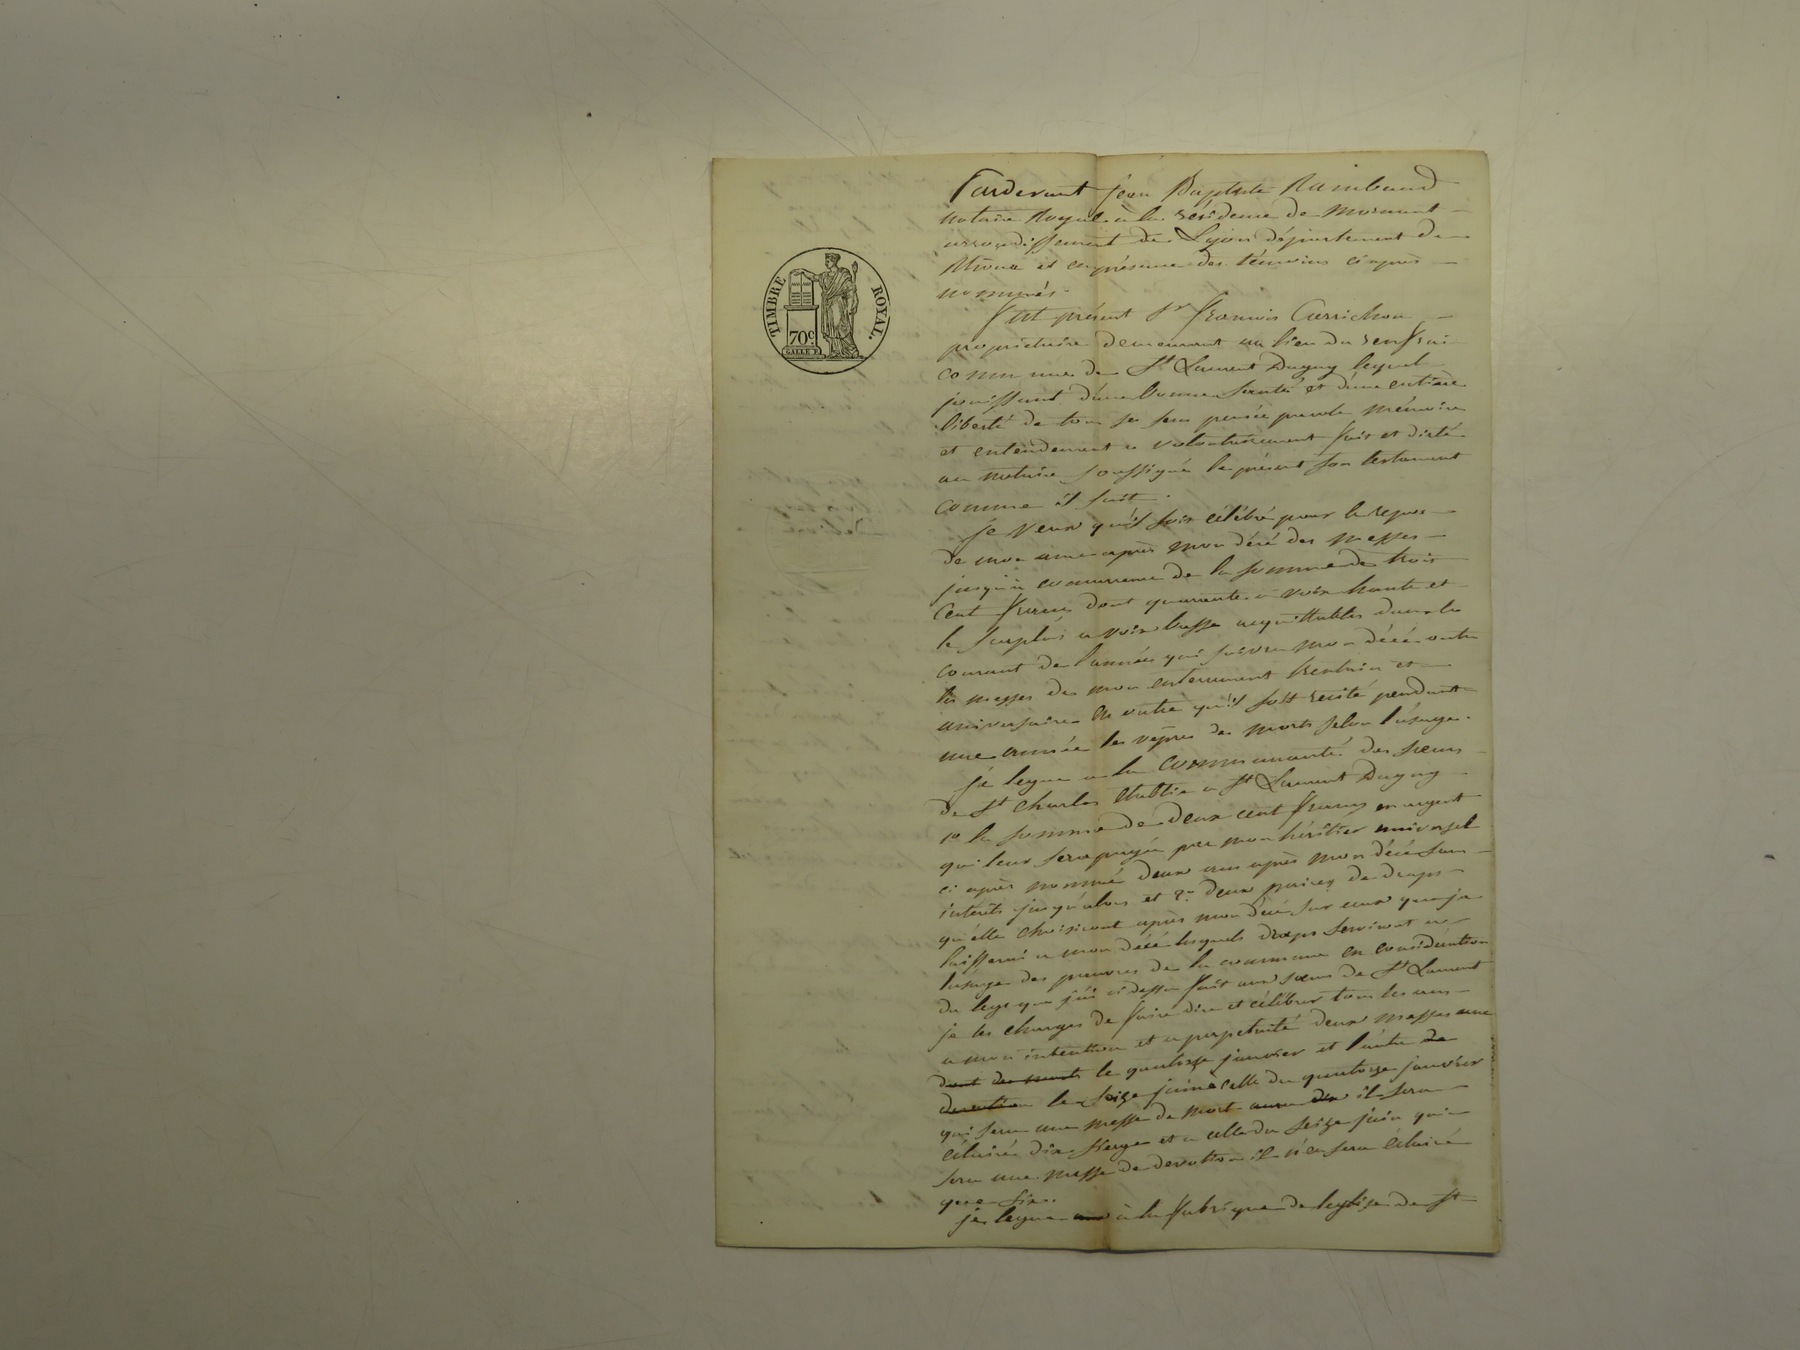 TIMBRE ROYAL.
70c
GALLE F.
Pardevant jean Baptiste Raimbaud
notaire Royal à la résidence de Mornant
arrondissement de Lyon département du
Rhône et en présence des témoins ci après
nommés.
fut présent Sr françois Carrichon
propriétaire demeurant au lieu du
commune de St Laurent Dagny lequel
jouissant d'une bonne santé et d'une entière
liberté de tous ses sens pensée parole mémoire
et entendement a volontairement fait et dicté
au notaire soussigné le présent son testament
comme il suit.
je veux qu'il soit célébré pour le repos
de mon ame après mon décé des messes
jusqu'à concurrence de la somme de trois
cent francs dont quarante a voix haute et
le surplus a voix basse acquittables dans le
courant de l'année qui suivra mon décé outre
les messes de mon enterrement et
aniversaire en outre qu'il soit récité pendant
une année les vêpres des morts selon l'usage.
je legue a la communauté des sœurs
de St Charles établie a St Laurent Dagny
1o la somme de deux cent francs en argent
qui leur sera payée par mon héritier universel
ci après nommé deux ans après mon décé sans
intérêts jusqu'alors et 2o deux paires de draps
qu'elle choisiront après mon décé sur ceux que je
laisserai a mon décé lesquels draps serviront a
l'usage des pauvres de la commune en considération
du legs que j'ai ci dessus fait aux sœurs de St Laurent
je les charges de faire dire et célébrer tous les ans
a mon intention et a perpétuité deux messes une
le quatorze janvier et l'autre de
devotion le seize juin celle du quatorze janvier
qui sera une messe de mort il sera
éclairée dix sierges et a celle du seize juin qui
sera une messe de devotion il n'en sera éclairé
que six.
je legue à la fabrique de leglise de St